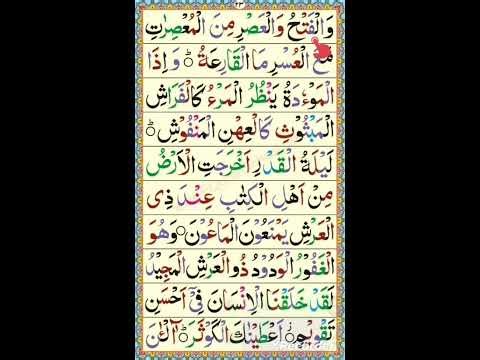 ٢٣
وَالْفَتْحُ وَالْعَصْرِ مِنَ الْمُعْصِرٰتِ
مَعَ الْعُسْرِ مَا الْقَارِعَةُ ۞ وَ اِذَا
الْمَوْءٗدَةُ يَنْظُرُ الْمَرْءُ كَالْفَرَاشِ
الْمَبْثُوْثِ كَالْعِهْنِ الْمَنْفُوْشِ ۞
لَيْلَةُ الْقَدْرِ اَخْرَجَتِ الْاَرْضُ
مِنْ اَهْلِ الْكِتٰبِ عِنْدَ ذِى
الْعَرْشِ يَمْنَعُوْنَ الْمَاعُوْنَ ۞ وَهُوَ
الْغَفُوْرُ الْوَدُوْدُ ذُو الْعَرْشِ الْمَجِيْدُ
لَقَدْ خَلَقْنَا الْاِنْسَانَ فِىْٓ اَحْسَنِ
تَقْوِيْمٍ ۞ اَعْطَيْنٰكَ الْكَوْثَرَ ۞ آٰلْـٰٔنَ